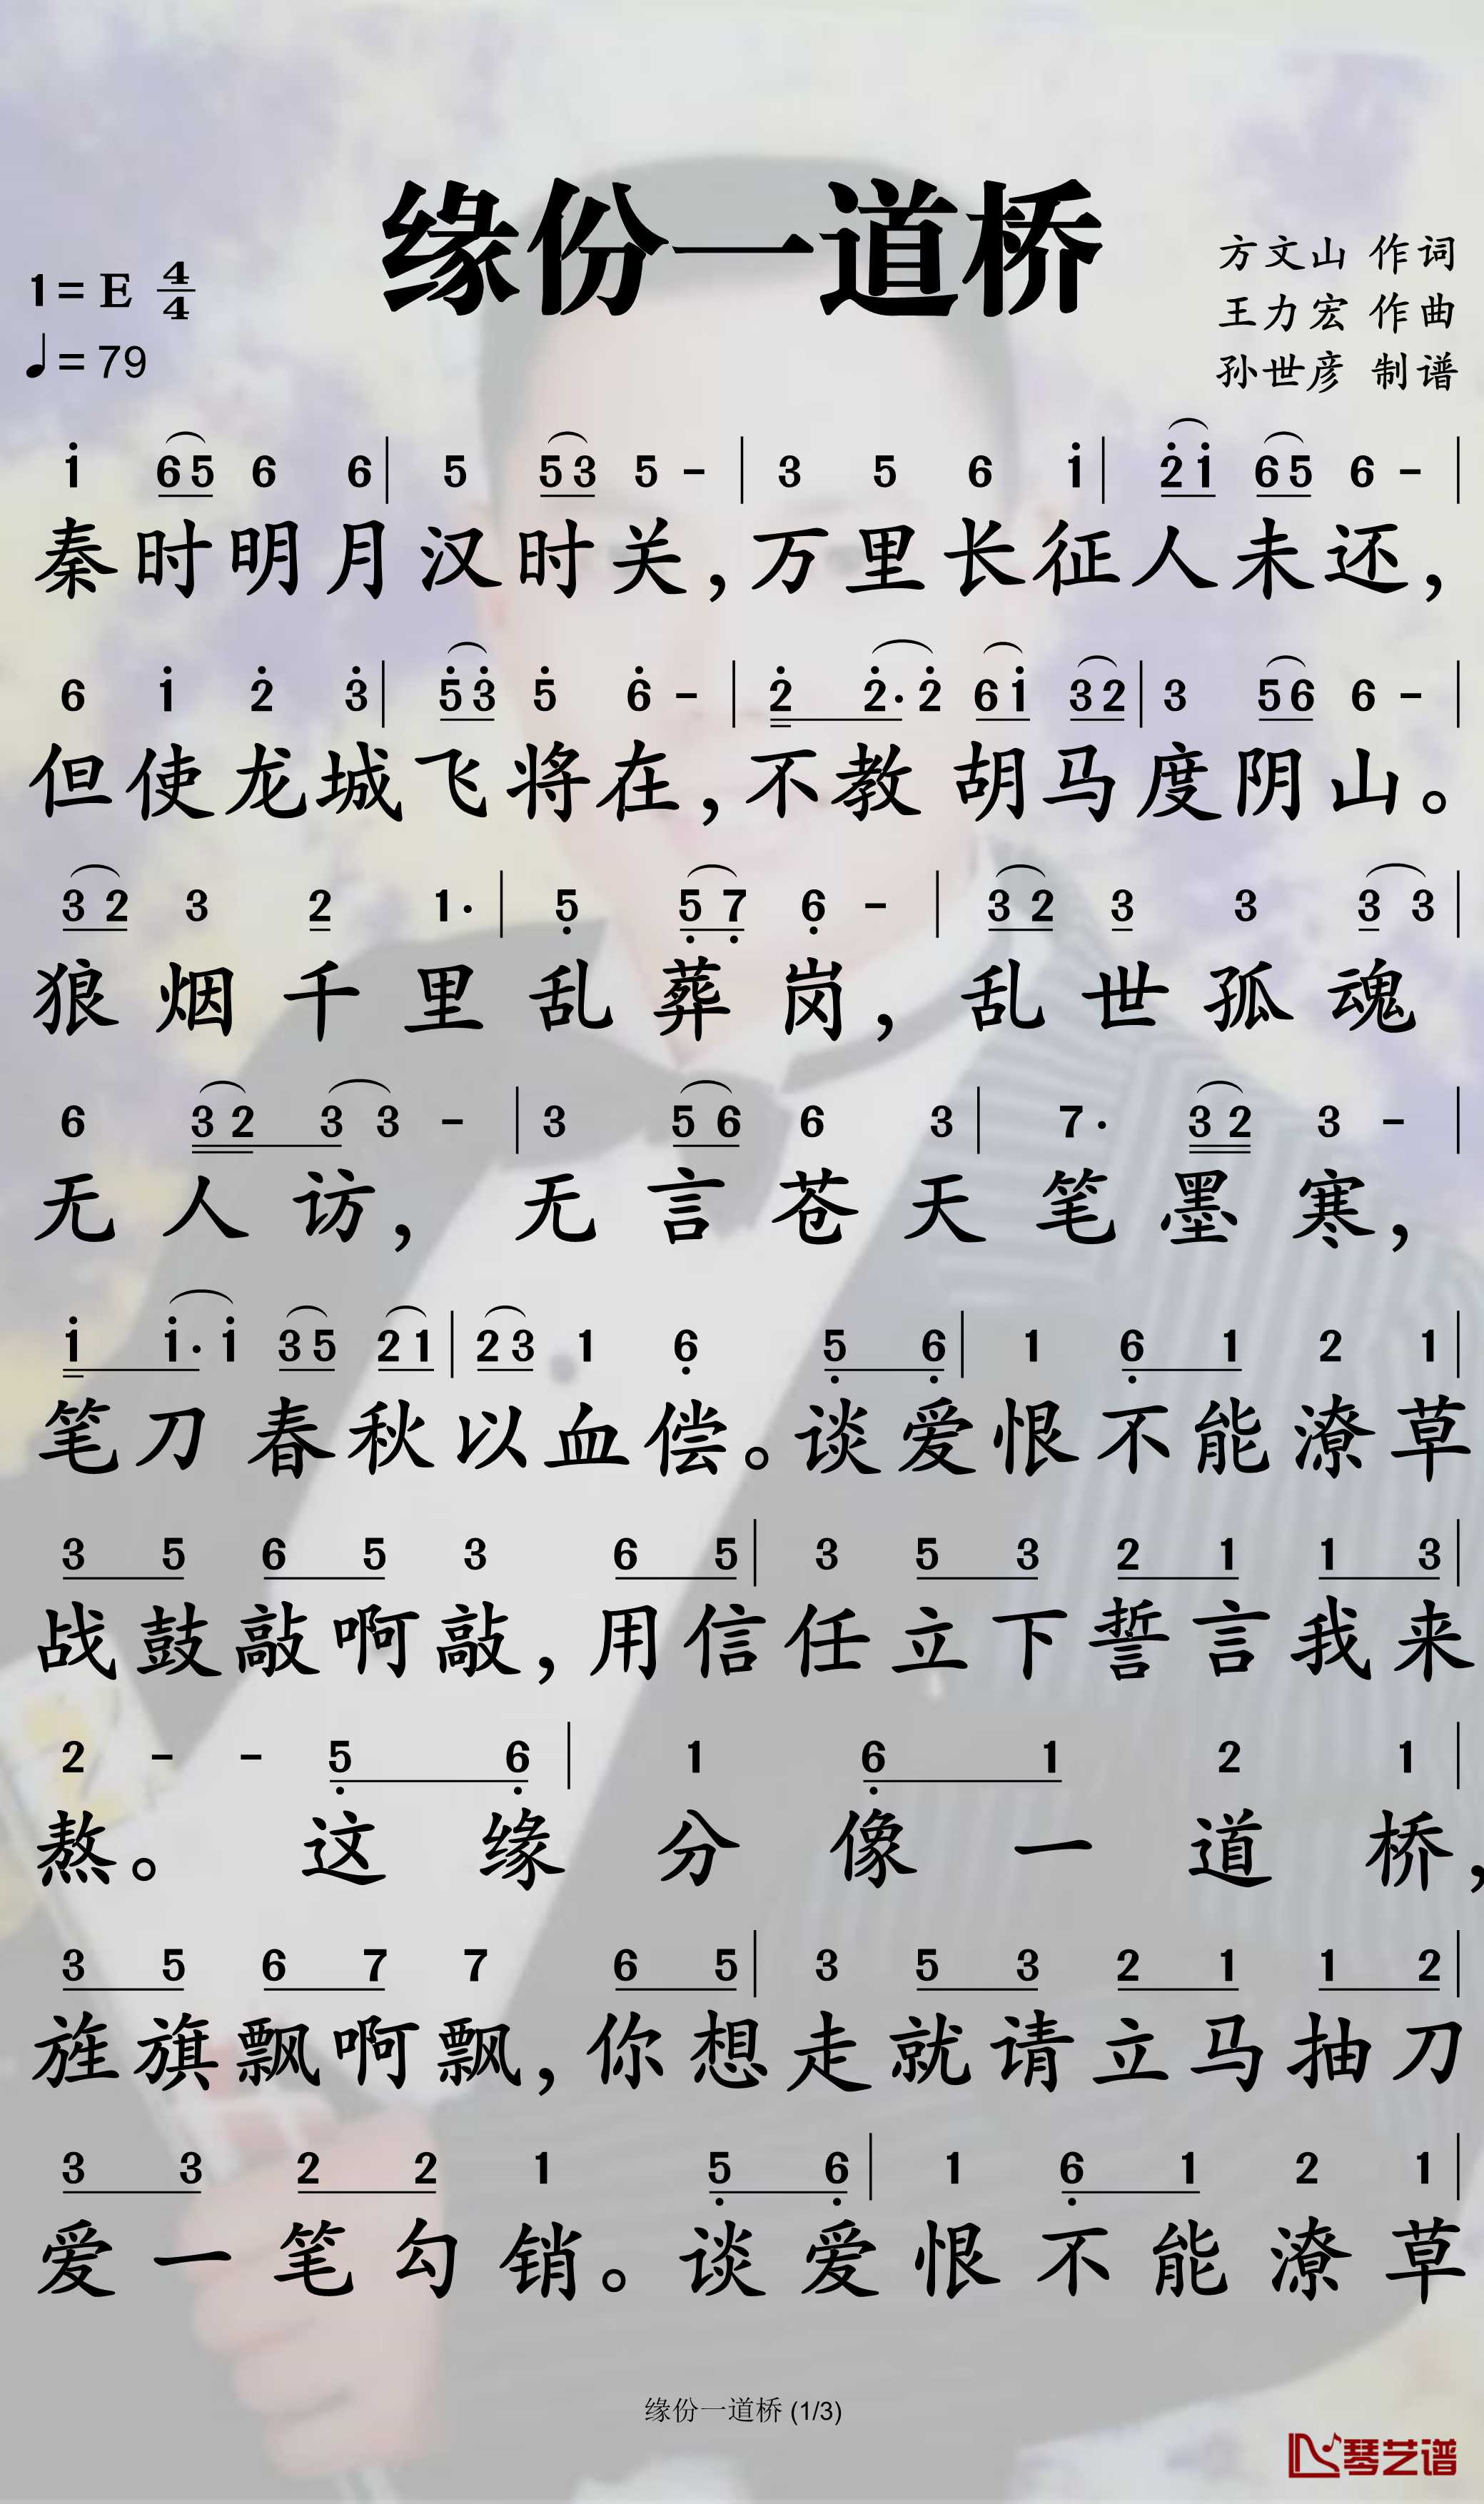 缘份一道桥
1=E 4/4
♩=79
方文山 作词
王力宏 作曲
孙世彦 制谱
i 65 6 6 | 5 53 5 - | 3 5 6 i | 2̇i 65 6 - |
秦时明月汉时关，万里长征人未还，
6 i 2̇ 3̇ | 5̇3̇ 5̇ 6̇ - | 2̇ 2̇·2̇ 6i 32 | 3 56 6 - |
但使龙城飞将在，不教 胡马度阴山。
32 3 2 1· | 5̣ 5̣7̣ 6̣ - | 32 3 3 3 3 |
狼烟千里乱葬岗，乱世孤魂
6 32 3 3 - | 3 56 6 3 | 7· 32 3 - |
无人访，无言苍天笔墨寒，
i i·i 35 21 | 23 1 6̣ 5̣ 6̣ | 1 6̣ 1 2 1 |
笔刀 春秋以血偿。谈爱恨不能潦草
3 5 6 5 3 6 5 | 3 5 3 2 1 1 3 |
战鼓敲啊敲，用信任立下誓言我来
2 - - 5̣ 6̣ | 1 6̣ 1 2 1 |
熬。这缘分像一道桥，
3 5 6 7 7 6 5 | 3 5 3 2 1 1 2 |
旌旗飘啊飘，你想走就请立马抽刀
3 3 2 2 1 5̣ 6̣ | 1 6̣ 1 2 1 |
爱一笔勾销。谈爱恨不能潦草
缘份一道桥 (1/3)
琴艺谱